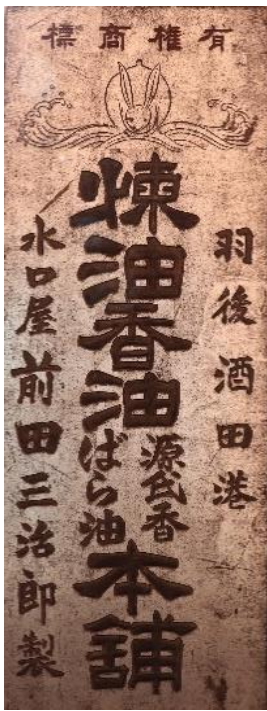 有權商標
羽後酒田港
煉油香油
源氏香
ばら油
本舗
水口屋前田三治郎製